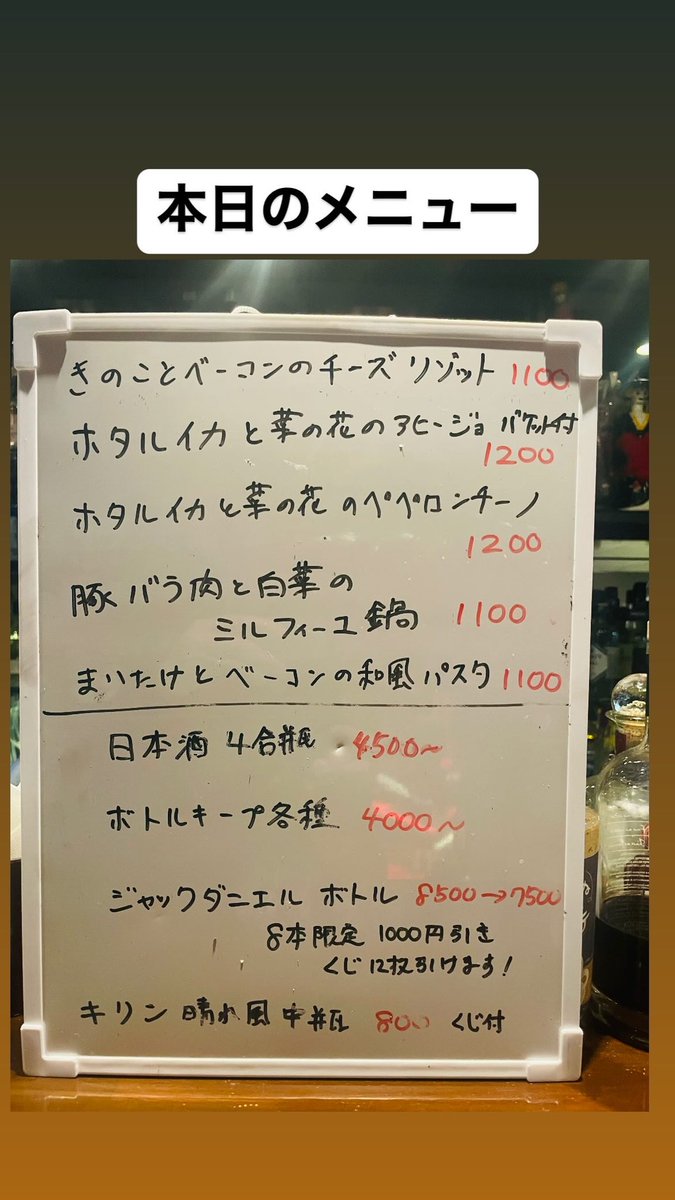 本日のメニュー
きのことベーコンのチーズリゾット 1100
ホタルイカと菜の花のアヒージョ バケット付
1200
ホタルイカと菜の花のペペロンチーノ
1200
豚バラ肉と白菜の
ミルフィーユ鍋 1100
まいたけとベーコンの和風パスタ 1100
日本酒 4合瓶 4500〜
ボトルキープ各種 4000〜
ジャックダニエル ボトル 8500→7500
8本限定 1000円引き
くじ12枚引けます!
キリン 晴れ風 中瓶 800 くじ付